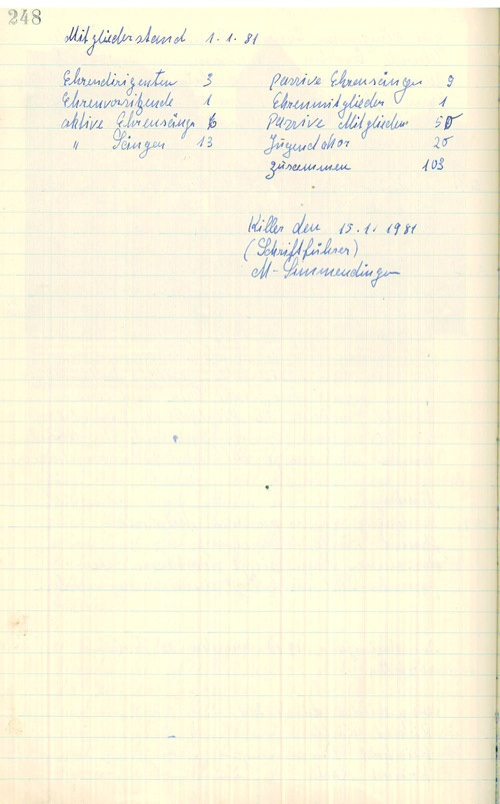 248
Mitgliederstand 1.1.81
Ehrendirigenten 3
Ehrenvorsitzende 1
aktive Ehrensänger 6
" Sänger 13
Passive Ehrensänger 9
Ehrenmitglieder 1
Passive Mitglieder 50
Jugendchor 20
zusammen 103
Killer den 15.1.1981
(Schriftführer)
M. Simmendinger